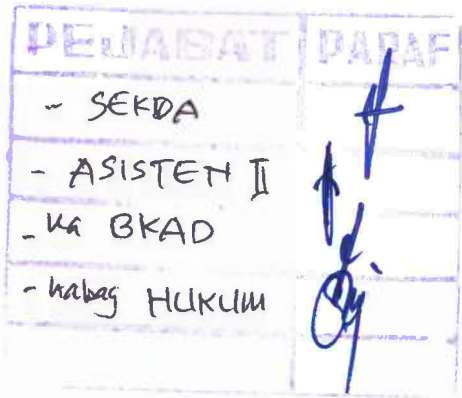 PEJABAT PARAF
- SEKDA
- ASISTEN II
- Ka BKAD
- Kabag HUKUM